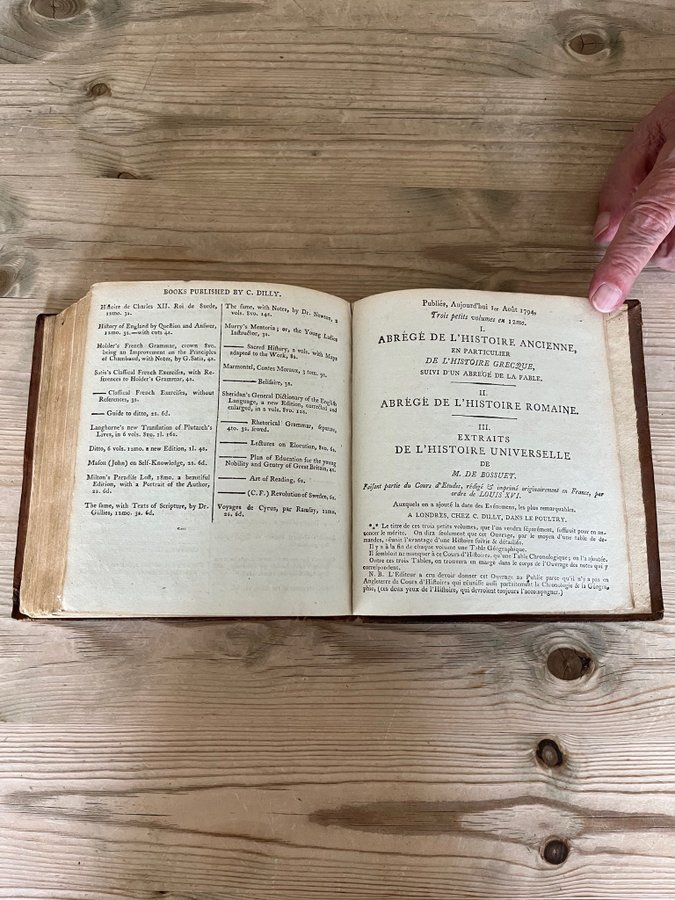 BOOKS PUBLISHED BY C. DILLY.
Histoire de Charles XII. Roi de Suede,
12mo. 3s.
History of England by Question and Answer,
12mo. 3s.—with cuts 4s.
Holder's French Grammar, crown 8vo.
being an Improvement on the Principles
of Chambaud, with Notes, by G. Satis, 4s.
Satis's Classical French Exercises, with Re-
ferences to Holder's Grammar, 4s.
—— Classical French Exercises, without
References, 3s.
—— Guide to ditto, 2s. 6d.
Langhorne's new Translation of Plutarch's
Lives, in 6 vols. 8vo. 2l. 16s.
Ditto, 6 vols. 12mo. a new Edition, 1l. 4s.
Mason (John) on Self-Knowledge, 2s. 6d.
Milton's Paradise Lost, 18mo. a beautiful
Edition, with a Portrait of the Author,
2s. 6d.
The same, with Texts of Scripture, by Dr.
Gillies, 12mo. 3s. 6d.
The same, with Notes, by Dr. Newton, 2
vols. 8vo. 14s.
Murry's Mentoria; or, the Young Ladies
Instructor, 3s.
—— Sacred History, 2 vols. with Maps
adapted to the Work, 8s.
Marmontel, Contes Moraux, 3 tom. 9s.
—— Belisaire, 3s.
Sheridan's General Dictionary of the English
Language, a new Edition, corrected and
enlarged, in 2 vols. 8vo.
—— Rhetorical Grammar, separate,
4to. 3s. sewed.
—— Lectures on Elocution, 8vo. 6s.
—— Plan of Education for the young
Nobility and Gentry of Great Britain, 4s.
—— Art of Reading, 6s.
—— (C. F.) Revolution of Sweden, 6s.
Voyages de Cyrus, par Ramsay, 12mo.
2s. 6d.
Publiés, Aujourd'hui 1er Août 1794,
Trois petits volumes en 12mo.
I.
ABRÉGÉ DE L'HISTOIRE ANCIENNE,
EN PARTICULIER
DE L'HISTOIRE GRECQUE,
SUIVI D'UN ABREGÉ DE LA FABLE.
II.
ABRÉGÉ DE L'HISTOIRE ROMAINE.
III.
EXTRAITS
DE L'HISTOIRE UNIVERSELLE
DE
M. DE BOSSUET.
Faisant partie du Cours d'Etudes, rédigé & imprimé originairement en France, par
ordre de LOUIS XVI.
Auxquels on a ajouté la date des Evénemens, les plus remarquables.
A LONDRES, CHEZ C. DILLY, DANS LE POULTRY.
*⁎* Le titre de ces trois petits volumes, que l'on vendra séparément, suffiroit pour en an-
noncer le mérite. On dira seulement que cet Ouvrage, par le moyen d'une table de de-
mandes, réunit l'avantage d'une Histoire suivie & détaillée.
Il y a à la fin de chaque volume une Table Géographique.
Il sembloit ne manquer à ce Cours d'Histoires, qu'une Table Chronologique; on l'a ajoutée.
Outre ces trois Tables, on trouvera en marge dans le corps de l'Ouvrage des notes qui y
correspondent.
N. B. L'Editeur a cru devoir donner cet Ouvrage au Public parce qu'il n'y a pas en
Angleterre de Cours d'Histoires qui réunisse aussi parfaitement la Chronologie & la Géogra-
phie, (ces deux yeux de l'Histoire, qui devroient toujours l'accompagner.)